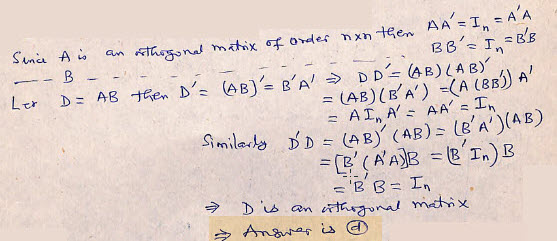 Since A is an orthogonal matrix of order n×n then AA' = In = A'A
— — B - - - - - - - - - - BB' = In = B'B
Let D = AB then D' = (AB)' = B'A' ⇒ DD' = (AB)(AB)'
= (AB)(B'A') = (A(BB'))A'
= A In A' = AA' = In
Similarly D'D = (AB)'(AB) = (B'A')(AB)
= [B'(A'A)]B = (B' In)B
= B'B = In
⇒ D is an orthogonal matrix
⇒ Answer is ⓓ